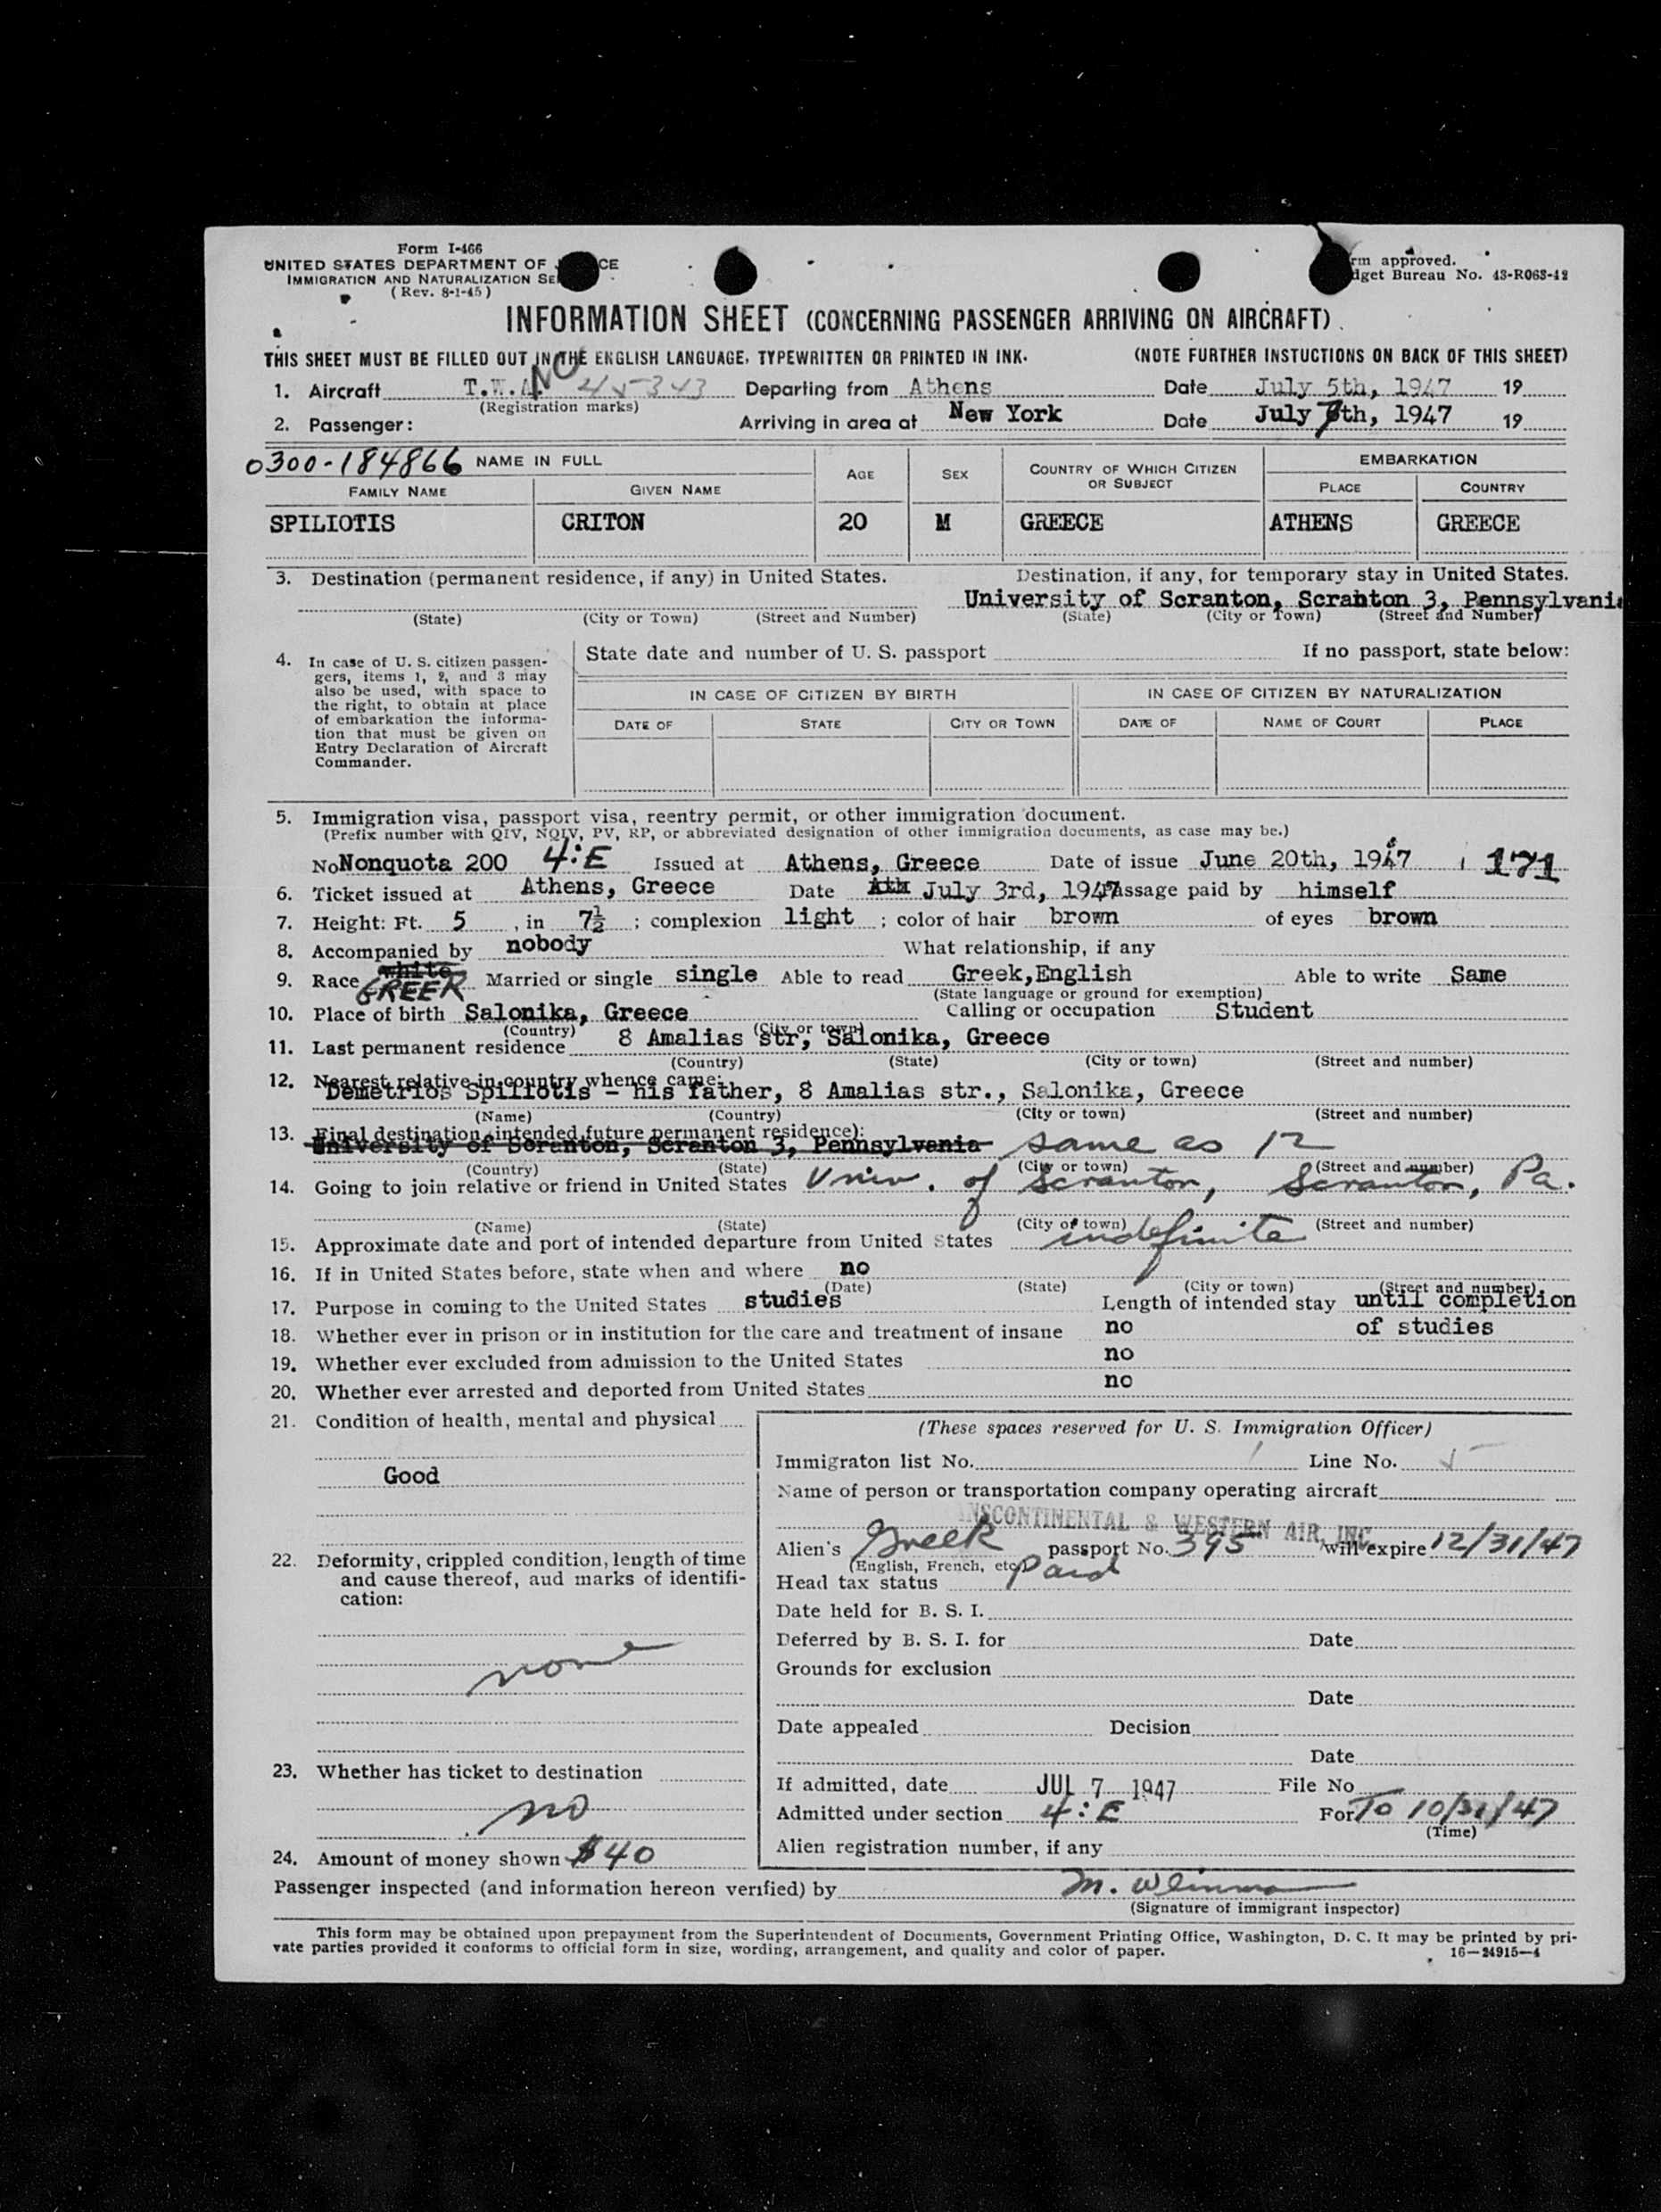 Form I-466
UNITED STATES DEPARTMENT OF CE
IMMIGRATION AND NATURALIZATION SE
(Rev. 8-1-45)
rm approved.
dget Bureau No. 43-R063-42
INFORMATION SHEET (CONCERNING PASSENGER ARRIVING ON AIRCRAFT)
THIS SHEET MUST BE FILLED OUT IN THE ENGLISH LANGUAGE, TYPEWRITTEN OR PRINTED IN INK. (NOTE FURTHER INSTUCTIONS ON BACK OF THIS SHEET)
1. Aircraft T.W.A. NC 45343 Departing from Athens Date July 5th, 1947 19
(Registration marks)
2. Passenger: Arriving in area at New York Date July 7th, 1947 19
0300-184866 NAME IN FULL AGE SEX COUNTRY OF WHICH CITIZEN OR SUBJECT EMBARKATION
FAMILY NAME GIVEN NAME PLACE COUNTRY
SPILIOTIS CRITON 20 M GREECE ATHENS GREECE
3. Destination (permanent residence, if any) in United States. Destination, if any, for temporary stay in United States.
University of Scranton, Scranton 3, Pennsylvani
(State) (City or Town) (Street and Number) (State) (City or Town) (Street and Number)
4. In case of U. S. citizen passen-
gers, items 1, 2, and 3 may
also be used, with space to
the right, to obtain at place
of embarkation the informa-
tion that must be given on
Entry Declaration of Aircraft
Commander.
State date and number of U. S. passport If no passport, state below:
IN CASE OF CITIZEN BY BIRTH IN CASE OF CITIZEN BY NATURALIZATION
DATE OF STATE CITY OR TOWN DATE OF NAME OF COURT PLACE
5. Immigration visa, passport visa, reentry permit, or other immigration document.
(Prefix number with QIV, NQIV, PV, RP, or abbreviated designation of other immigration documents, as case may be.)
No Nonquota 200 4:E Issued at Athens, Greece Date of issue June 20th, 1947 171
6. Ticket issued at Athens, Greece Date Ath July 3rd, 1947 Passage paid by himself
7. Height: Ft. 5, in 7½; complexion light; color of hair brown of eyes brown
8. Accompanied by nobody What relationship, if any
9. Race white GREEK Married or single single Able to read Greek,English Able to write Same
(State language or ground for exemption)
10. Place of birth Salonika, Greece Calling or occupation Student
(Country) (City or town)
11. Last permanent residence 8 Amalias str, Salonika, Greece
(Country) (State) (City or town) (Street and number)
12. Nearest relative in country whence came:
Demetrios Spiliotis - his father, 8 Amalias str., Salonika, Greece
(Name) (Country) (City or town) (Street and number)
13. Final destination (intended future permanent residence):
University of Scranton, Scranton 3, Pennsylvania same as 12
(Country) (State) (City or town) (Street and number)
14. Going to join relative or friend in United States Univ. of Scranton, Scranton, Pa.
(Name) (State) (City of town) (Street and number)
15. Approximate date and port of intended departure from United States indefinite
16. If in United States before, state when and where no
(Date) (State) (City or town) (Street and number)
17. Purpose in coming to the United States studies Length of intended stay until completion
18. Whether ever in prison or in institution for the care and treatment of insane no of studies
19. Whether ever excluded from admission to the United States no
20. Whether ever arrested and deported from United States no
21. Condition of health, mental and physical
Good
22. Deformity, crippled condition, length of time
and cause thereof, aud marks of identifi-
cation:
none
23. Whether has ticket to destination
no
24. Amount of money shown $40
(These spaces reserved for U. S. Immigration Officer)
Immigraton list No. Line No. 5
Name of person or transportation company operating aircraft
NSCONTINENTAL & WESTERN AIR, INC.
Alien's Greek passport No. 395 will expire 12/31/47
(English, French, etc.)
Head tax status Paid
Date held for B. S. I.
Deferred by B. S. I. for Date
Grounds for exclusion
Date
Date appealed Decision
Date
If admitted, date JUL 7 1947 File No
Admitted under section 4:E For To 10/31/47
(Time)
Alien registration number, if any
Passenger inspected (and information hereon verified) by M.
(Signature of immigrant inspector)
This form may be obtained upon prepayment from the Superintendent of Documents, Government Printing Office, Washington, D. C. It may be printed by pri-
vate parties provided it conforms to official form in size, wording, arrangement, and quality and color of paper. 16—24915-4